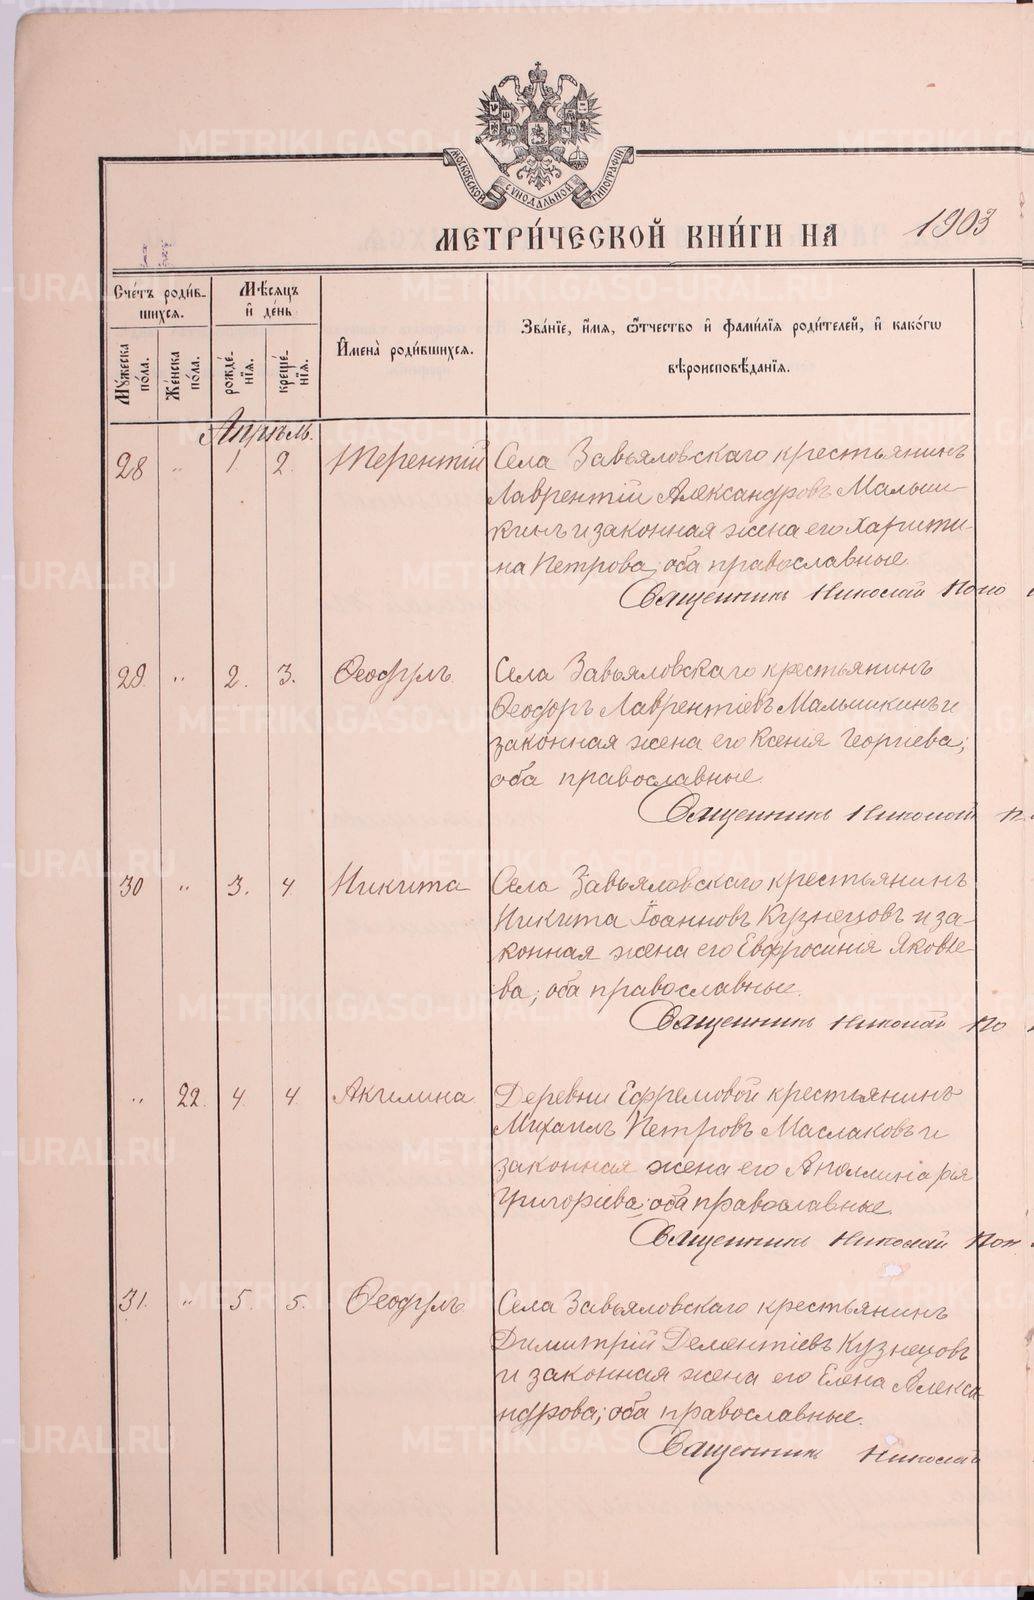 МОСКОВСКОЙ СѴНОДАЛЬНОЙ ТИПОГРАФІИ
МЕТРИ́ЧЕСКОЙ КНИ́ГИ НА 1903
Сче́тъ роди́в-
шихся.
Мѣ́сяцъ
и де́нь
Имена̀ роди́вшихся.
Зва́ніе, и́мя, ѻ҆́тчество и фами́лія роди́телей, и како́гѡ
вѣроисповѣ́данія.
Му́жеска
по́ла.
Же́нска
по́ла.
рожде́-
нія.
креще́-
нія.
Апрѣль.
28 " 1. 2. Терентій Села Завьяловскаго крестьянинъ
Лаврентій Александровъ Малыш-
кинъ и законная жена его Харити-
на Петрова; оба православные.
Священникъ Николай Попо
29. " 2. 3. Ѳеодулъ Села Завьяловскаго крестьянинъ
Ѳеодоръ Лаврентіевъ Малышкинъ и
законная жена его Ксенія Георгіева;
оба православные.
Священникъ Николай П
30 " 3. 4. Никита Села Завьяловскаго крестьянинъ
Никита Іоанновъ Кузнецовъ и за-
конная жена его Евфросинія Яковле-
ва; оба православные.
Священникъ Николай По
" 22. 4. 4. Акилина Деревни Ефремовой крестьянинъ
Михаилъ Петровъ Маслаковъ и
законная жена его Аполлинарія
Григоріева; оба православные.
Священникъ Николай Поп
31. " 5. 5. Ѳеодулъ Села Завьяловскаго крестьянинъ
Димитрій Дементіевъ Кузнецовъ
и законная жена его Елена Алекса-
ндрова; оба православные.
Священникъ Николай
METRIKI.GASO-URAL.RU